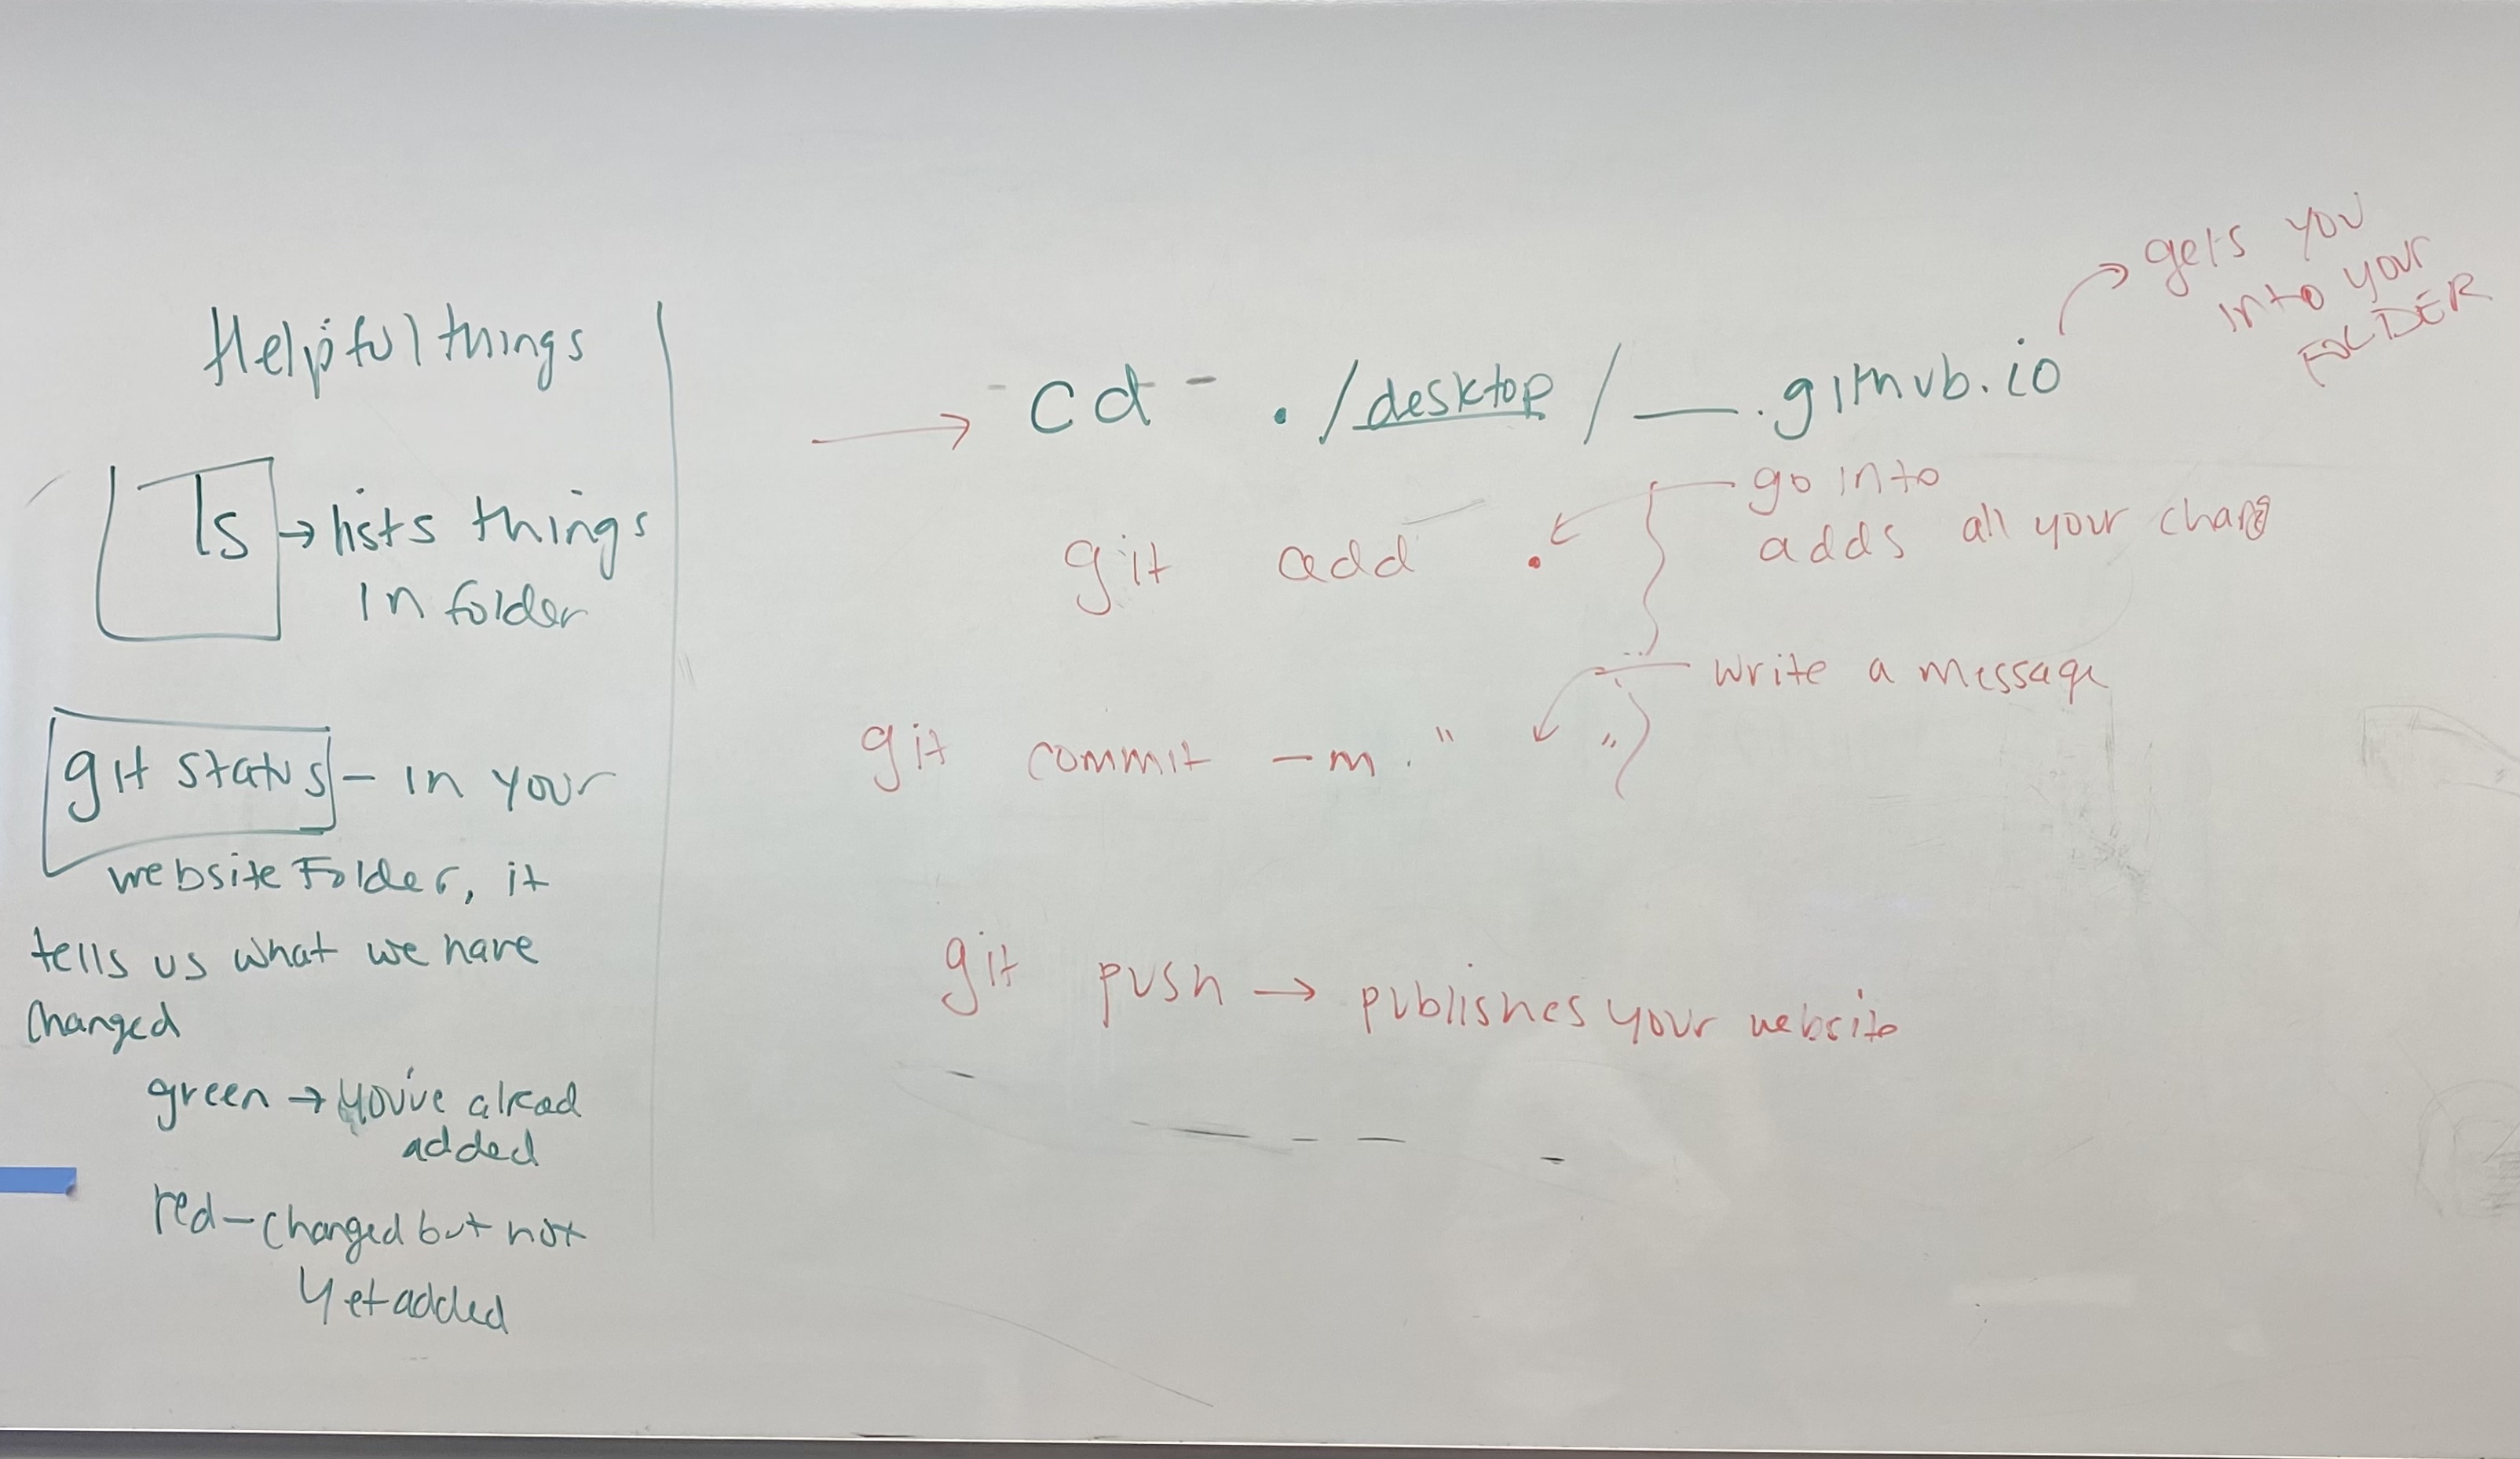 Helpful things
ls → lists things
in folder
git status - in your
website Folder, it
tells us what we have
changed
green → you've alread
added
red - changed but not
yet added
→ cd ./desktop/__.github.io
gets you
into your
FOLDER
git add .
go into
adds all your chang
write a message
git commit -m " "
git push → publishes your website